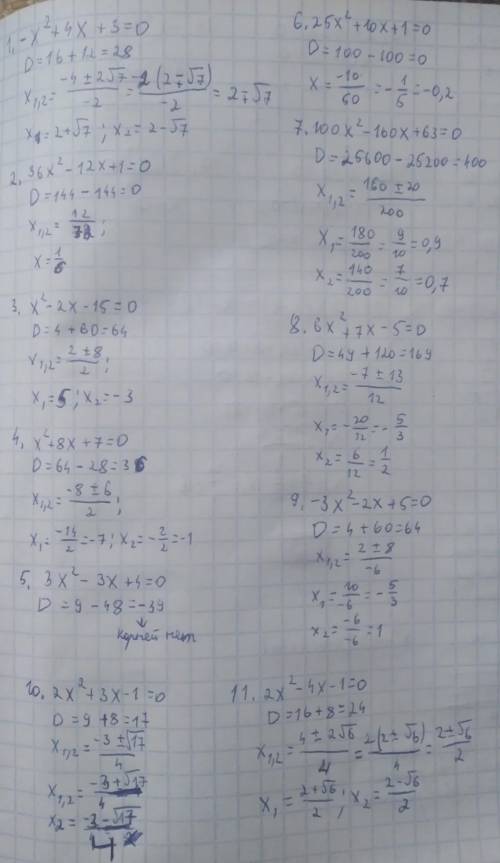 1. -x²+4x+3=0
D=16+12=28
x₁,₂= (-4±2√7)/-2 = -2(2∓√7)/-2 = 2∓√7
x₁=2+√7; x₂=2-√7
2. 36x²-12x+1=0
D=144-144=0
x₁,₂= 12/72;
x=1/6
3. x²-2x-15=0
D=4+60=64
x₁,₂= (2±8)/2;
x₁=5; x₂=-3
4. x²+8x+7=0
D=64-28=36
x₁,₂= (-8±6)/2;
x₁= -14/2=-7; x₂=-2/2=-1
5. 3x²-3x+4=0
D=9-48=-39
↓
корней нет
6. 25x²+10x+1=0
D=100-100=0
x= -10/50 = -1/5=-0,2
7. 100x²-160x+63=0
D=25600-25200=400
x₁,₂= (160±20)/200
x₁= 180/200 = 9/10 = 0,9
x₂= 140/200 = 7/10 = 0,7
8. 6x²+7x-5=0
D=49+120=169
x₁,₂= (-7±13)/12
x₁=-20/12=-5/3
x₂= 6/12 = 1/2
9. -3x²-2x+5=0
D=4+60=64
x₁,₂= (2±8)/-6
x₁= 10/-6 = -5/3
x₂= -6/-6 = 1
10. 2x²+3x-1=0
D=9+8=17
x₁,₂= (-3±√17)/4
x₁,₂= (-3+√17)/4
x₂= (-3-√17)/4
11. 2x²-4x-1=0
D=16+8=24
x₁,₂= (4±2√6)/4 = 2(2±√6)/4 = (2±√6)/2
x₁= (2+√6)/2; x₂= (2-√6)/2